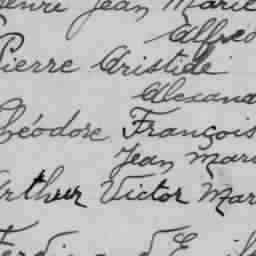 Henri Jean Marie
Alfred
Pierre Aristide
Alexand
Théodore François
Jean Mari
Arthur Victor Mar